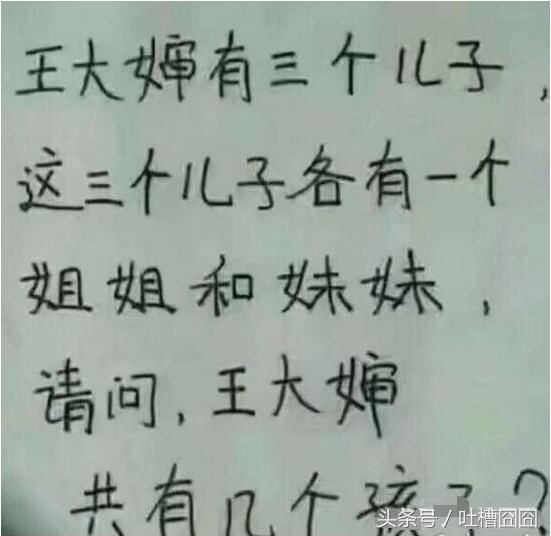 王大婶有三个儿子,
这三个儿子各有一个
姐姐和妹妹,
请问,王大婶
共有几个孩子?
头条号/吐槽囧囧